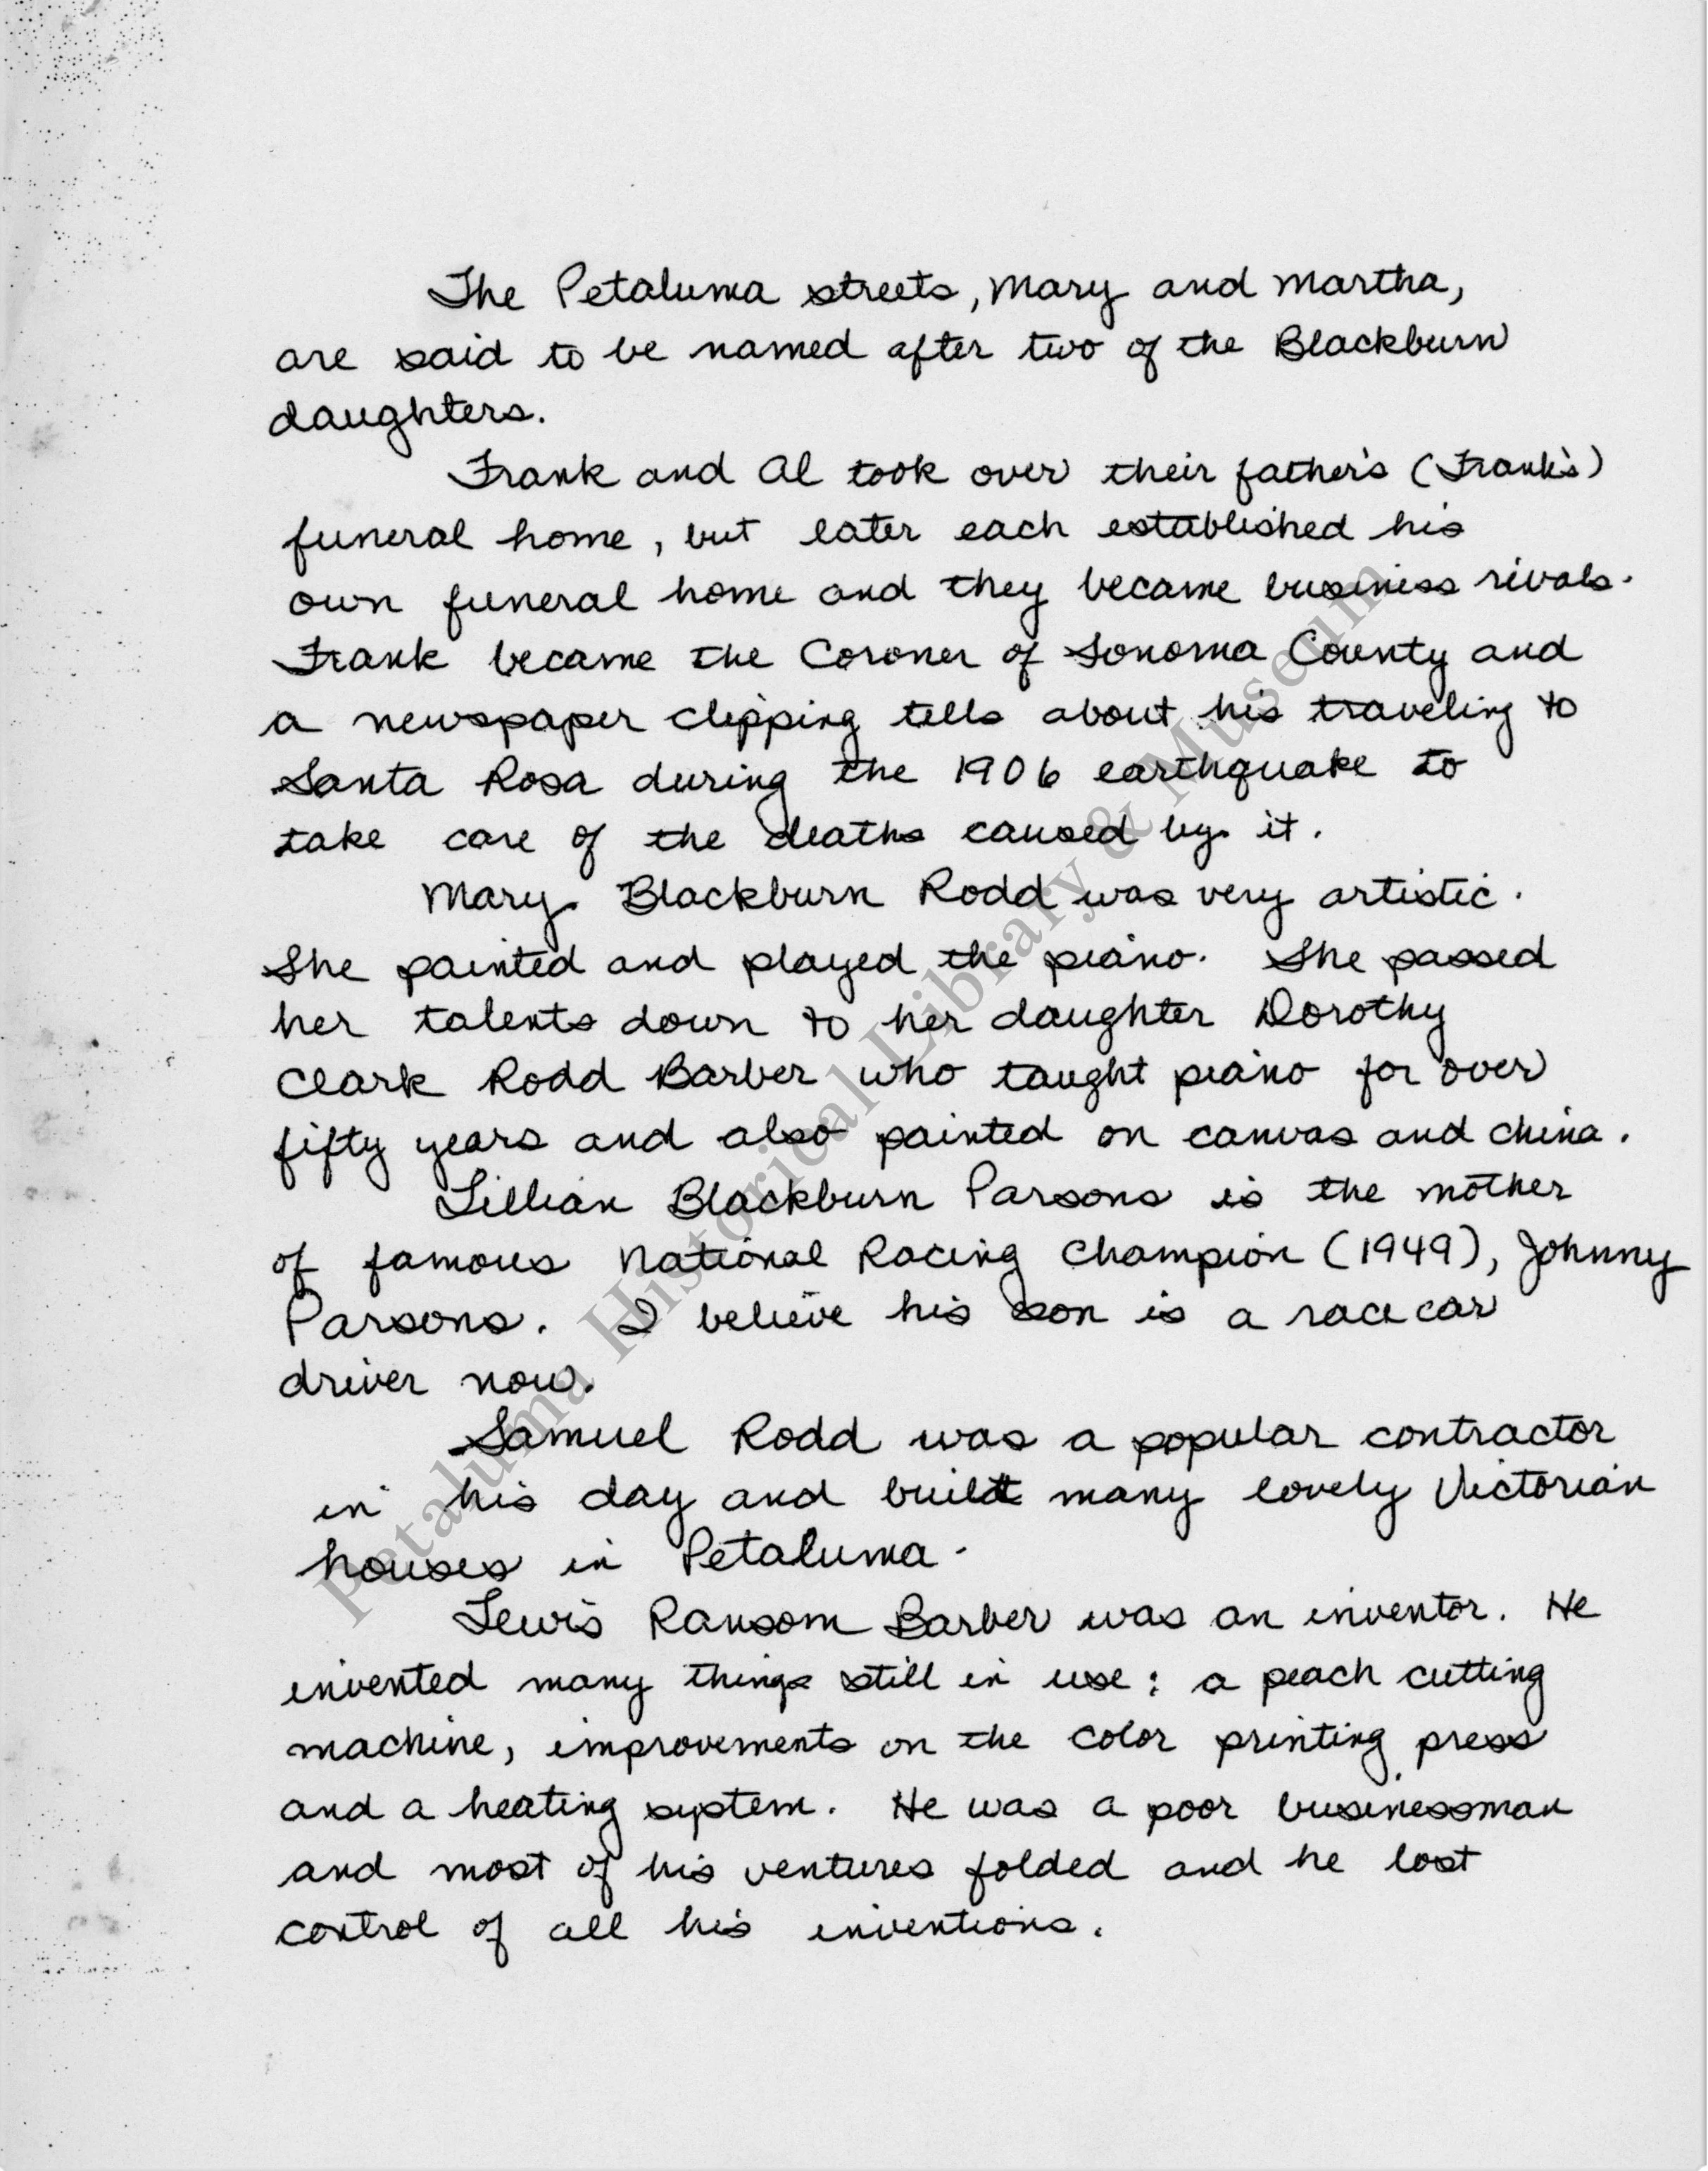 The Petaluma streets, Mary and Martha,
are said to be named after two of the Blackburn
daughters.
Frank and Al took over their father's (Frank's)
funeral home, but later each established his
own funeral home and they became business rivals.
Frank became the Coroner of Sonoma County and
a newspaper clipping tells about his traveling to
Santa Rosa during the 1906 earthquake to
take care of the deaths caused by it.
Mary Blackburn Rodd was very artistic.
She painted and played the piano. She passed
her talents down to her daughter Dorothy
Clark Rodd Barber who taught piano for over
fifty years and also painted on canvas and china.
Lillian Blackburn Parsons is the mother
of famous National Racing Champion (1949), Johnny
Parsons. I believe his son is a race car
driver now.
Samuel Rodd was a popular contractor
in his day and built many lovely Victorian
houses in Petaluma.
Lewis Ransom Barber was an inventor. He
invented many things still in use: a peach cutting
machine, improvements on the color printing press
and a heating system. He was a poor businessman
and most of his ventures folded and he lost
control of all his inventions.
Petaluma Historical Library & Museum